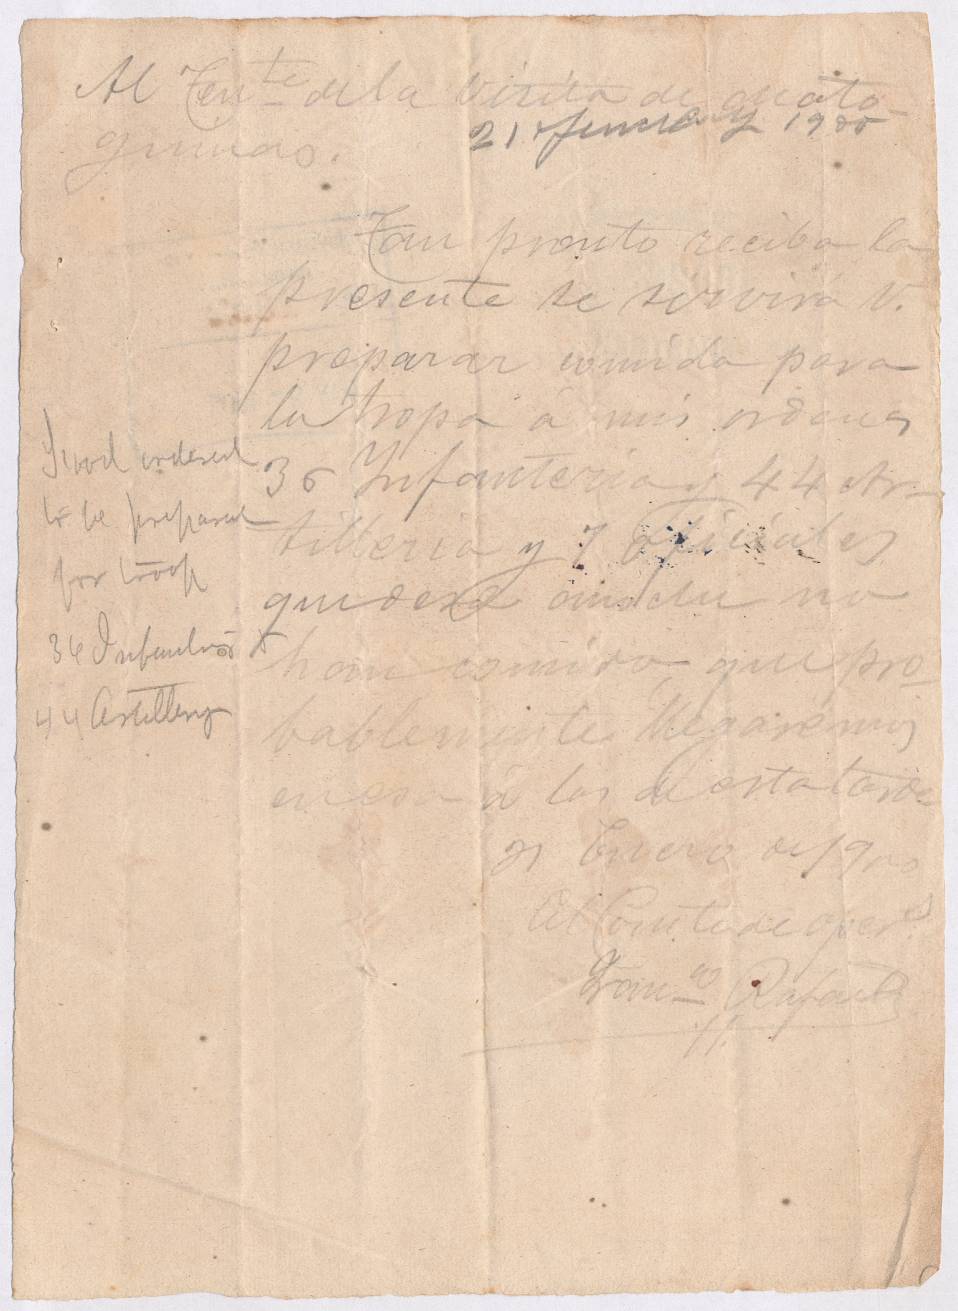 Al Tente de la Visita de Mata-
21 January 1900
gunao.
Tan pronto reciba la
presente se servirá V.
preparar comida para
la tropa á mis ordenes
36 Infanteria y 44 Ar-
tilleria y 7 oficiales
que desde no
han comido, que pro-
bablemente llegaremos
en esa á las de esta tarde
21 Enero de 1900
El Comte de oper.es
Franco Rafael
Food ordered
to be prepared
for troop
36 Infantry &
44 Artillery